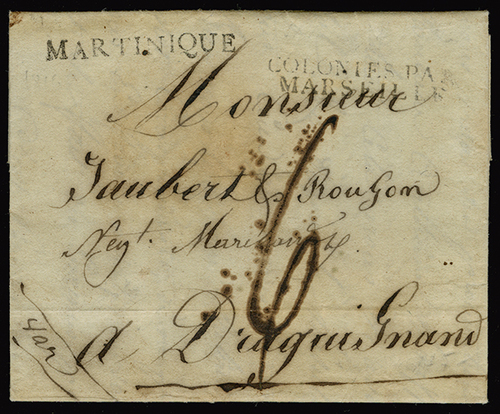 MARTINIQUE
COLONIES PAR
MARSEILLE
Monsieur
Jaubert & Rougon
Negt.
6
a Draguignand